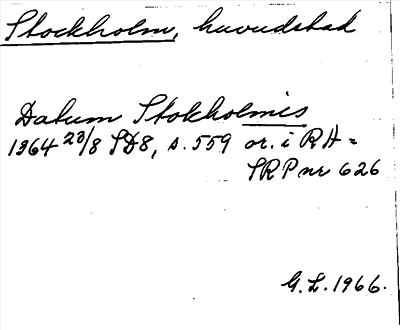 Stockholm, huvudstad
Datum Stokholmis
1364 23/8 SD8, s. 559 or. i RH =
SRP nr 626
G. L. 1966.